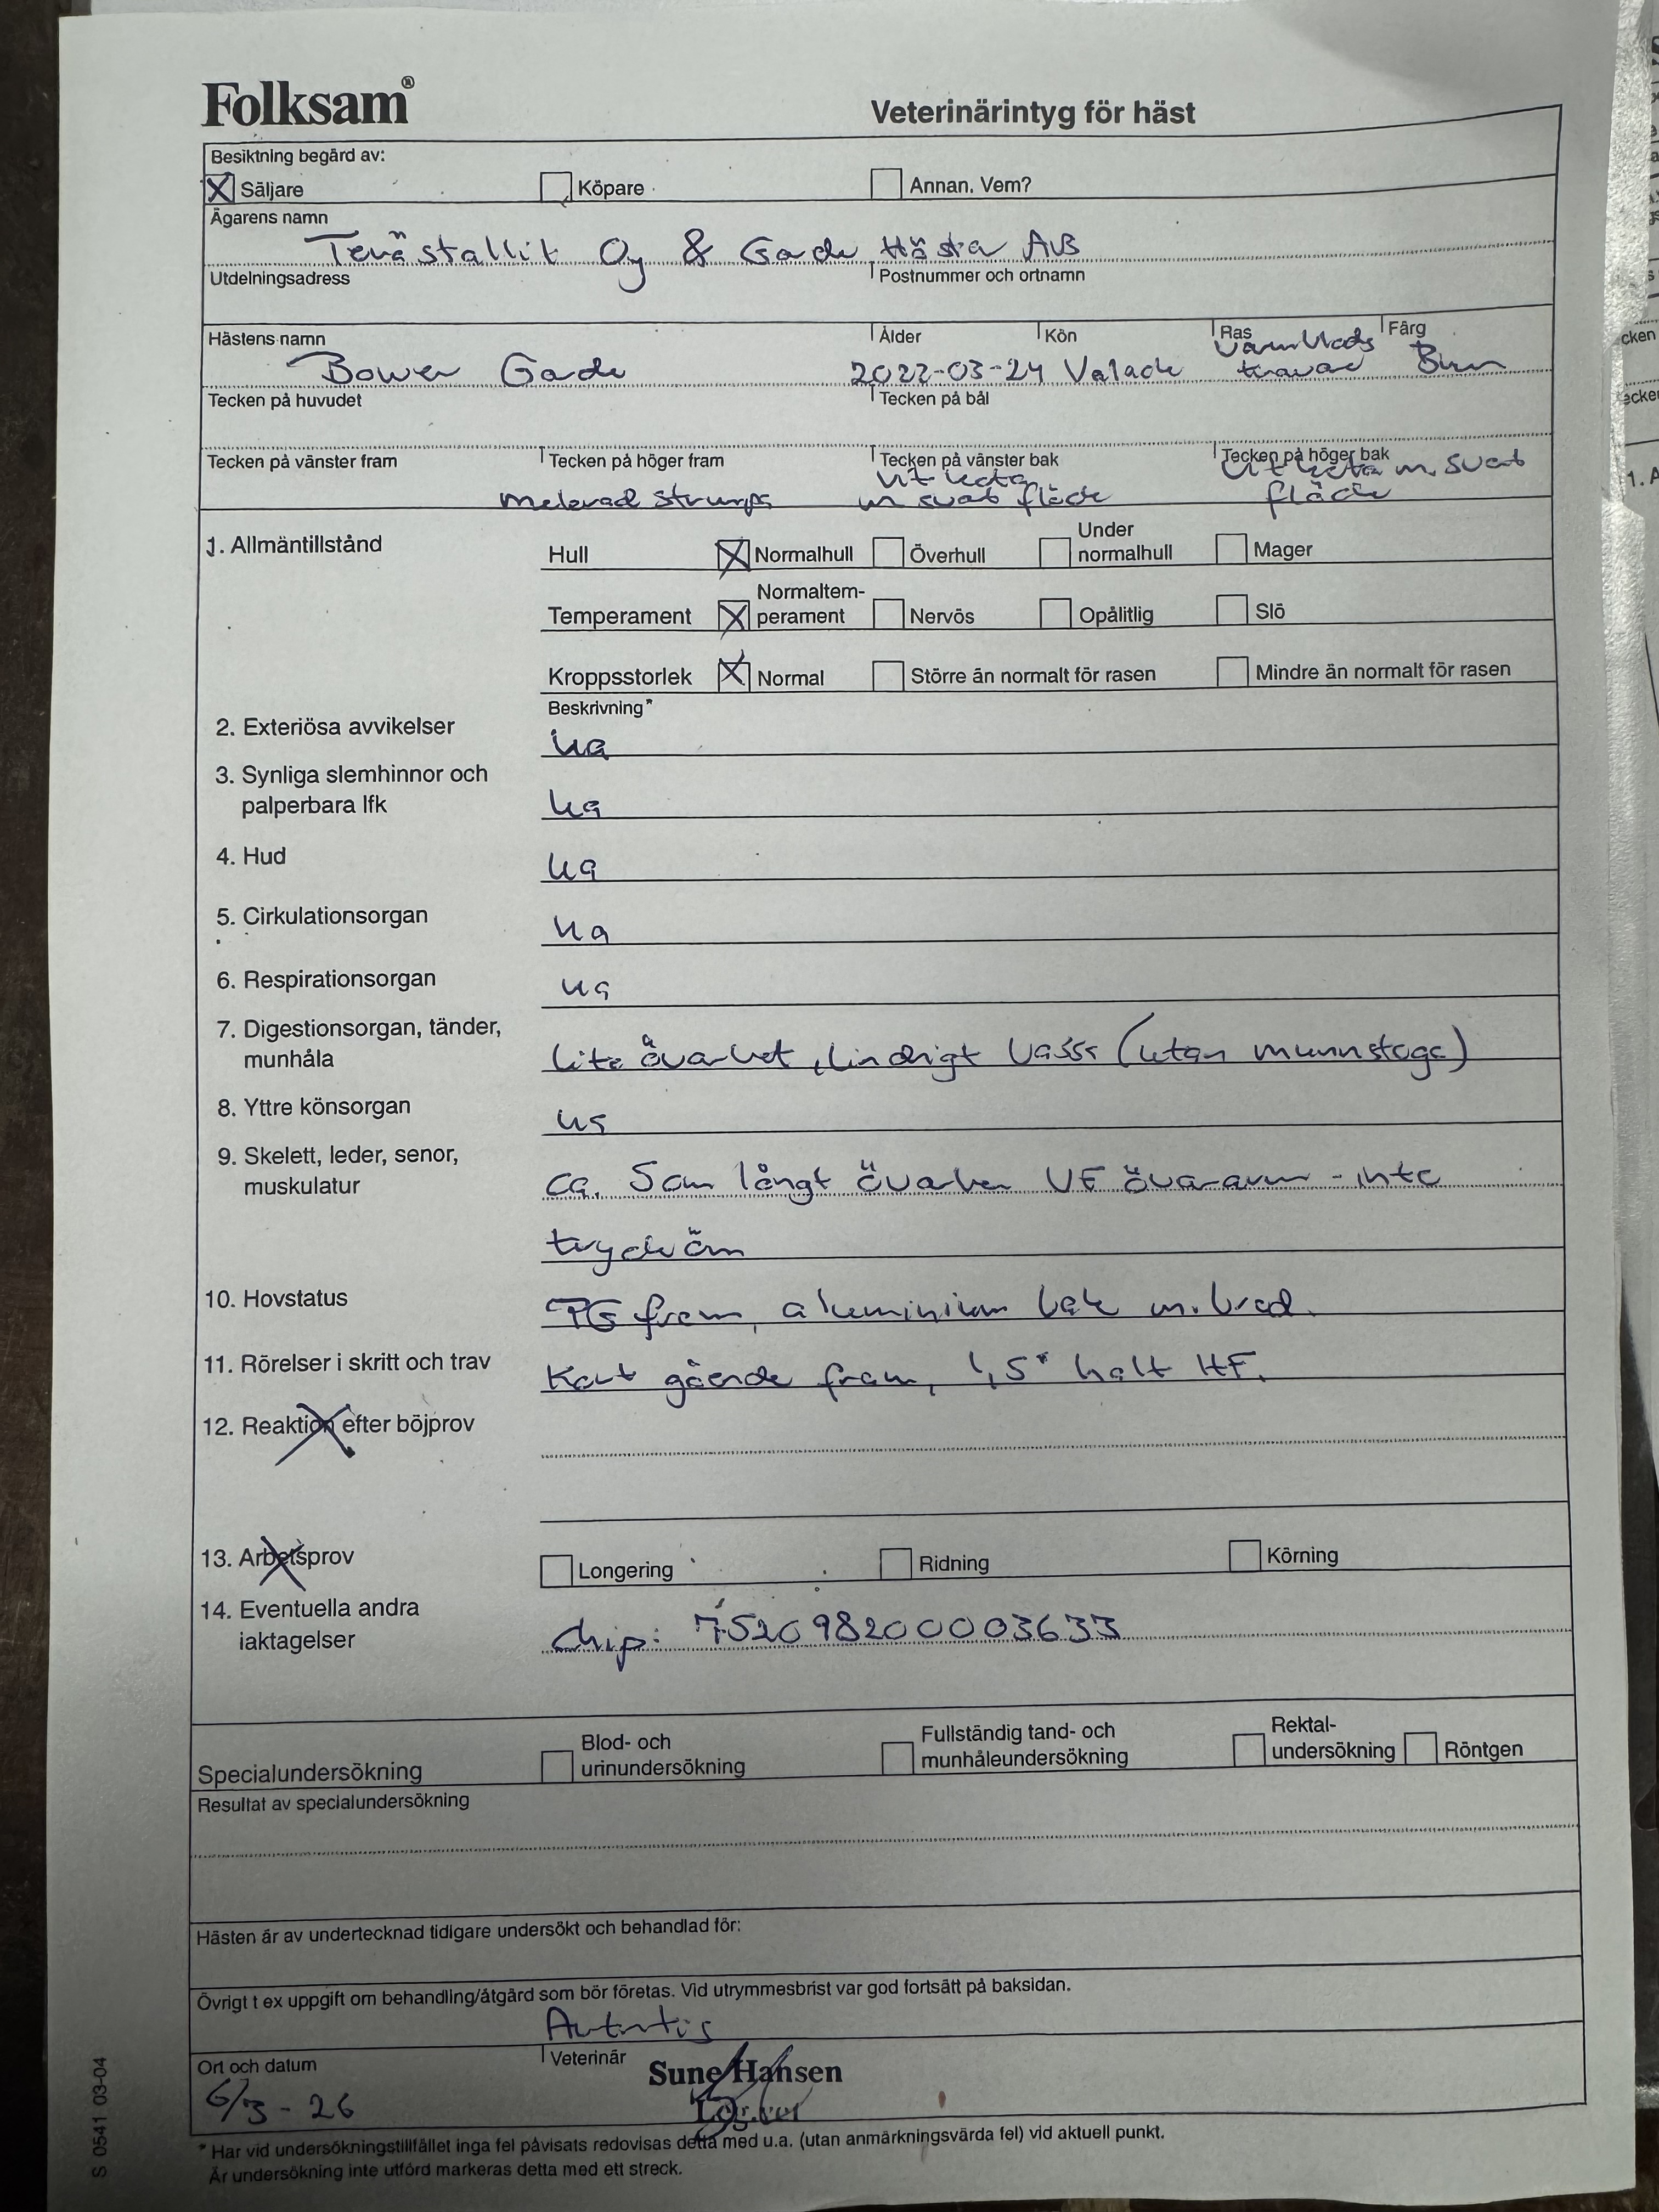 Folksam®
Veterinärintyg för häst
Besiktning begärd av:
X Säljare Köpare Annan. Vem?
Ägarens namn
Terästallit Oy & Gade Hästar AB
Utdelningsadress Postnummer och ortnamn
Hästens namn Ålder Kön Ras Färg
Bower Gade 2022-03-24 Valack Varmblods travare Brun
Tecken på huvudet Tecken på bål
Tecken på vänster fram Tecken på höger fram Tecken på vänster bak Tecken på höger bak
melerad strumpa vit kota m svart fläck vit kota m. svart fläck
1. Allmäntillstånd
Hull X Normalhull Överhull Under normalhull Mager
Temperament X Normaltem-perament Nervös Opålitlig Slö
Kroppsstorlek X Normal Större än normalt för rasen Mindre än normalt för rasen
Beskrivning*
2. Exteriösa avvikelser ua
3. Synliga slemhinnor och
palperbara lfk ua
4. Hud ua
5. Cirkulationsorgan ua
6. Respirationsorgan ua
7. Digestionsorgan, tänder,
munhåla lite överbet, lindrigt vassa (utan munstege)
8. Yttre könsorgan ua
9. Skelett, leder, senor,
muskulatur ca. 5cm långt överben VF överarm - inte
tryköm
10. Hovstatus PG fram, aluminium bak m. brodd.
11. Rörelser i skritt och trav Kort gående fram, 1,5° halt HF.
12. Reaktion efter böjprov
13. Arbetsprov Longering Ridning Körning
14. Eventuella andra
iaktagelser chip: 752098200003633
Specialundersökning Blod- och urinundersökning Fullständig tand- och munhåleundersökning Rektal-undersökning Röntgen
Resultat av specialundersökning
Hästen är av undertecknad tidigare undersökt och behandlad för:
Övrigt t ex uppgift om behandling/åtgärd som bör företas. Vid utrymmesbrist var god fortsätt på baksidan.
Ort och datum Veterinär
6/3-26 Sune Hansen
Leg.vet
* Har vid undersökningstillfället inga fel påvisats redovisas detta med u.a. (utan anmärkningsvärda fel) vid aktuell punkt.
Är undersökning inte utförd markeras detta med ett streck.
S 0541 03-04